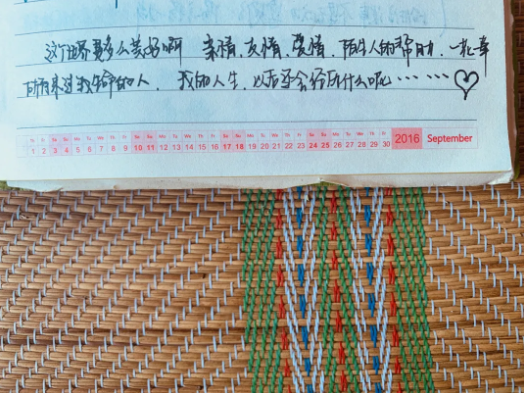 这个世界要多么美好啊 亲情、友情、爱情、陌生人的帮助、一花一草
所有来过我生命的人、我的人生,以后还会经历什么呢……♡
Th Fr Sa Su Mo Tu We Th Fr Sa Su Mo Tu We Th Fr Sa Su Mo Tu We Th Fr Sa Su Mo Tu We Th Fr
1 2 3 4 5 6 7 8 9 10 11 12 13 14 15 16 17 18 19 20 21 22 23 24 25 26 27 28 29 30 2016 September